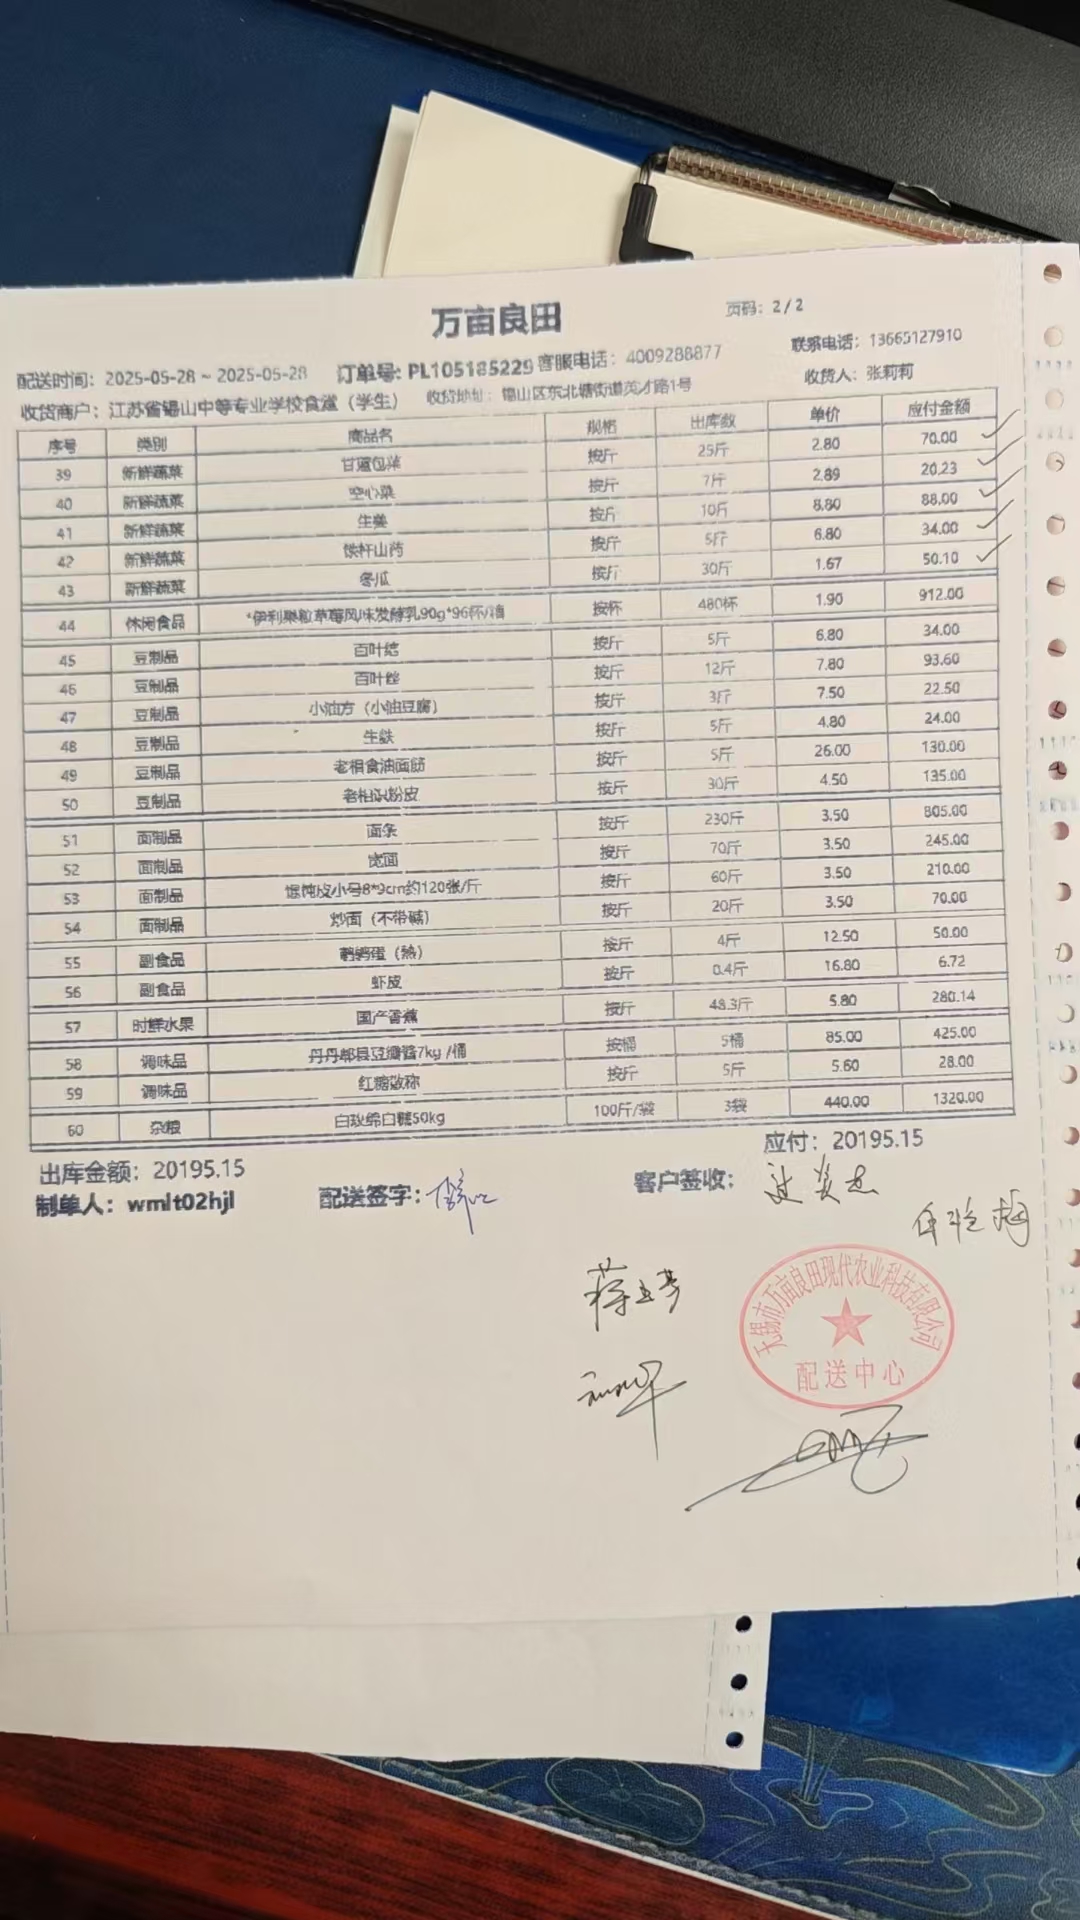 万亩良田
页码：2 / 2
配送时间：2025-05-28 ~ 2025-05-28 订单号: PL105185229 客服电话：4009288877 联系电话：13665127910
收货商户：江苏省锡山中等专业学校食堂（学生） 收货地址：锡山区东北塘街道英才路1号 收货人：张莉莉
序号 类别 商品名 规格 出库数 单价 应付金额
39 新鲜蔬菜 甘蓝包菜 按斤 25斤 2.80 70.00
40 新鲜蔬菜 空心菜 按斤 7斤 2.89 20.23
41 新鲜蔬菜 生姜 按斤 10斤 8.80 88.00
42 新鲜蔬菜 铁杆山药 按斤 5斤 6.80 34.00
43 新鲜蔬菜 冬瓜 按斤 30斤 1.67 50.10
44 休闲食品 *伊利果粒草莓风味发酵乳90g*96杯/箱 按杯 480杯 1.90 912.00
45 豆制品 百叶结 按斤 5斤 6.80 34.00
46 豆制品 百叶丝 按斤 12斤 7.80 93.60
47 豆制品 小油方（小油豆腐） 按斤 3斤 7.50 22.50
48 豆制品 生麸 按斤 5斤 4.80 24.00
49 豆制品 老相食油面筋 按斤 5斤 26.00 130.00
50 豆制品 老相食粉皮 按斤 30斤 4.50 135.00
51 面制品 面条 按斤 230斤 3.50 805.00
52 面制品 宽面 按斤 70斤 3.50 245.00
53 面制品 馄饨皮小号8*9cm约120张/斤 按斤 60斤 3.50 210.00
54 面制品 炒面（不带碱） 按斤 20斤 3.50 70.00
55 副食品 鹌鹑蛋（熟） 按斤 4斤 12.50 50.00
56 副食品 虾皮 按斤 0.4斤 16.80 6.72
57 时鲜水果 国产香蕉 按斤 48.3斤 5.80 280.14
58 调味品 丹丹郫县豆瓣酱7kg /桶 按桶 5桶 85.00 425.00
59 调味品 红糖散称 按斤 5斤 5.60 28.00
60 杂粮 白玫绵白糖50kg 100斤/袋 3袋 440.00 1320.00
出库金额：20195.15 应付：20195.15
制单人：wmlt02hjl 配送签字： 客户签收：
无锡市万亩良田现代农业科技有限公司
配送中心